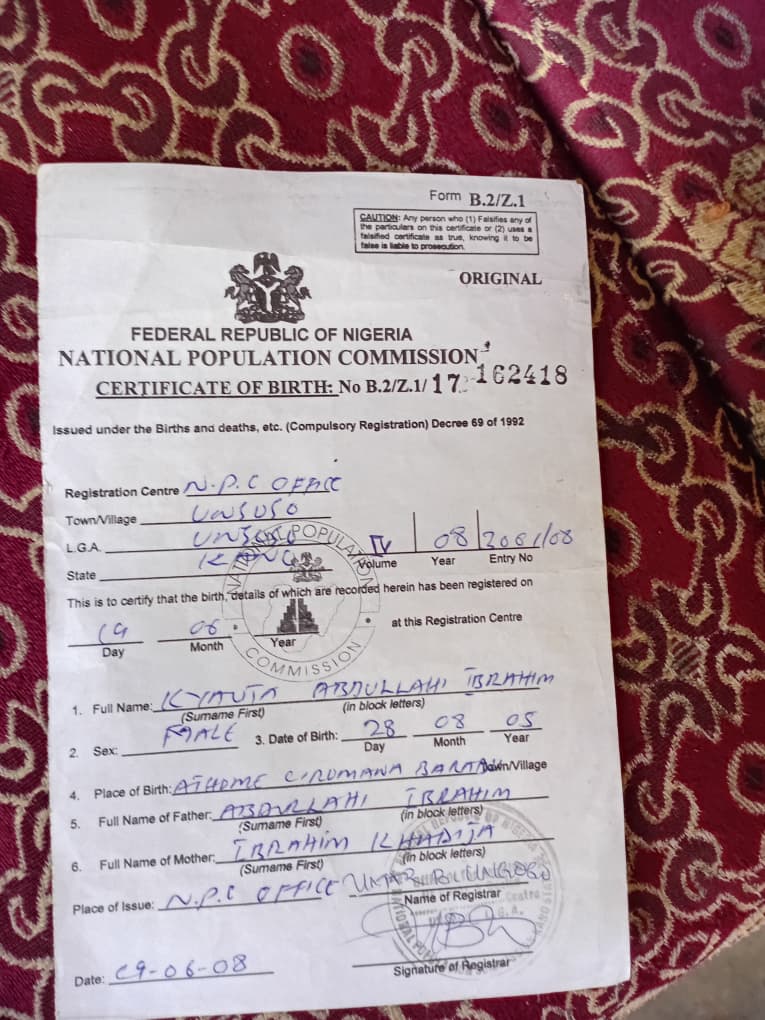 Form B.2/Z.1
CAUTION: Any person who (1) Falsifies any of
the particulars on this certificate or (2) uses a
falsified certificate as true, knowing it to be
false is liable to prosecution.
ORIGINAL
FEDERAL REPUBLIC OF NIGERIA
NATIONAL POPULATION COMMISSION
CERTIFICATE OF BIRTH: No B.2/Z.1/ 17 162418
Issued under the Births and deaths, etc. (Compulsory Registration) Decree 69 of 1992
Registration Centre N.P.C OFFICE
Town/Village UNGOGO
L.G.A. UNGOGO IV 08 2081/08
Volume Year Entry No
State KANO
NATIONAL POPULATION COMMISSION
This is to certify that the birth, details of which are recorded herein has been registered on
19 06 at this Registration Centre
Day Month Year
1. Full Name: KYAUTA ABDULLAHI IBRAHIM
(Surname First) (in block letters)
2. Sex: MALE 3. Date of Birth: 28 08 05
Day Month Year
4. Place of Birth: AT HOME CIROMAWA Town/Village
5. Full Name of Father: ABDULLAHI IBRAHIM
(Surname First) (in block letters)
6. Full Name of Mother: IBRAHIM KHADIJA
(Surname First) (in block letters)
Place of Issue: N.P.C OFFICE UMAR
Name of Registrar
Date: 19-06-08
Signature of Registrar